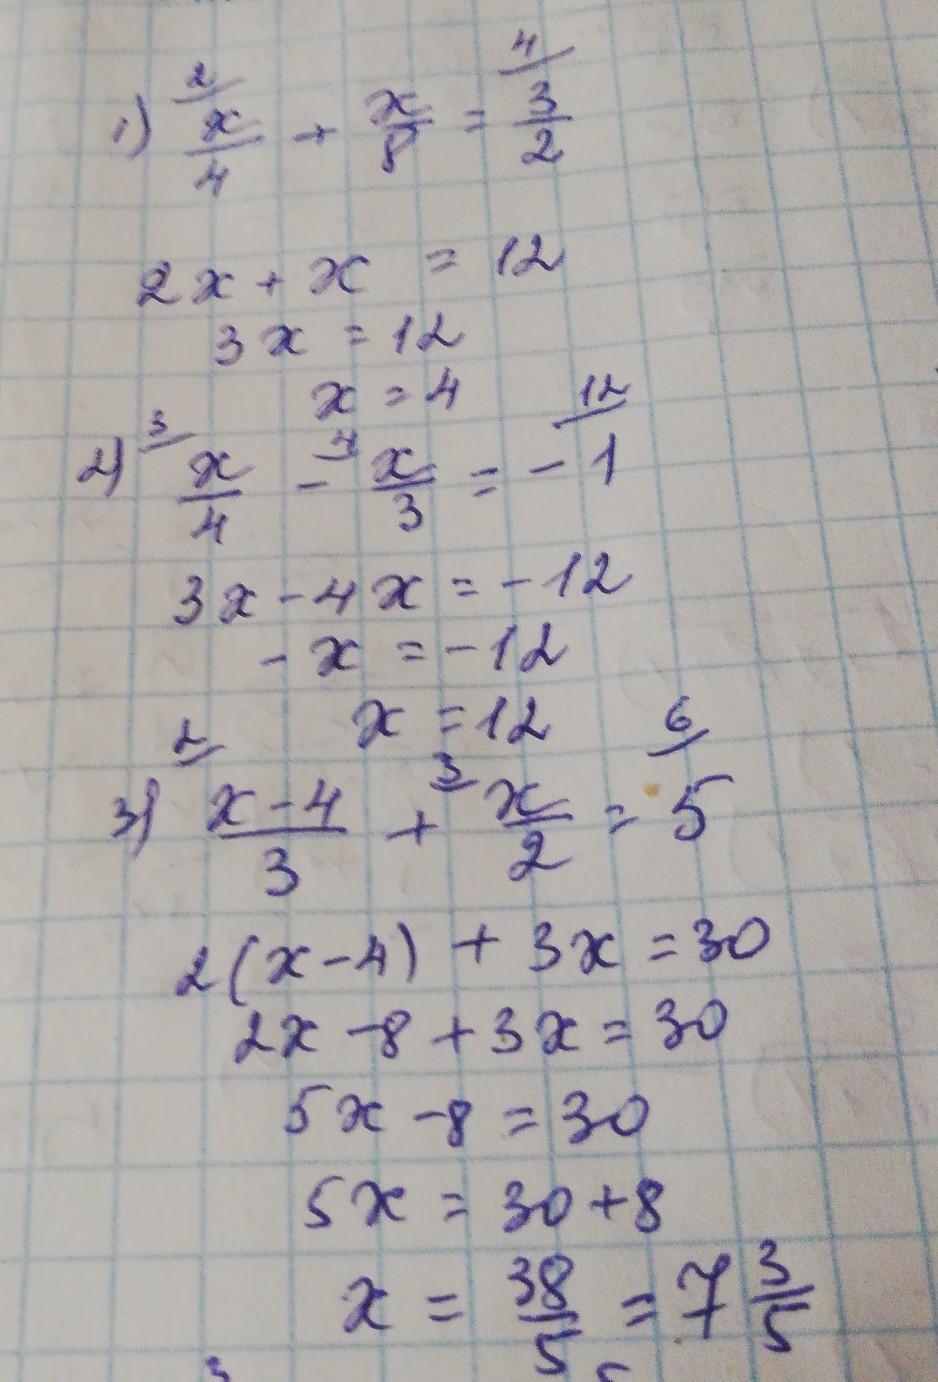 1) ²/ x/4 + x/8 = ⁴/ 3/2
2x + x = 12
3x = 12
x = 4
2) ³/ x/4 - ⁴/ x/3 = - ¹²/ 1
3x - 4x = -12
-x = -12
x = 12
3) ²/ (x-4)/3 + ³/ x/2 = ⁶/ 5
2(x-4) + 3x = 30
2x - 8 + 3x = 30
5x - 8 = 30
5x = 30 + 8
x = 38/5 = 7 3/5